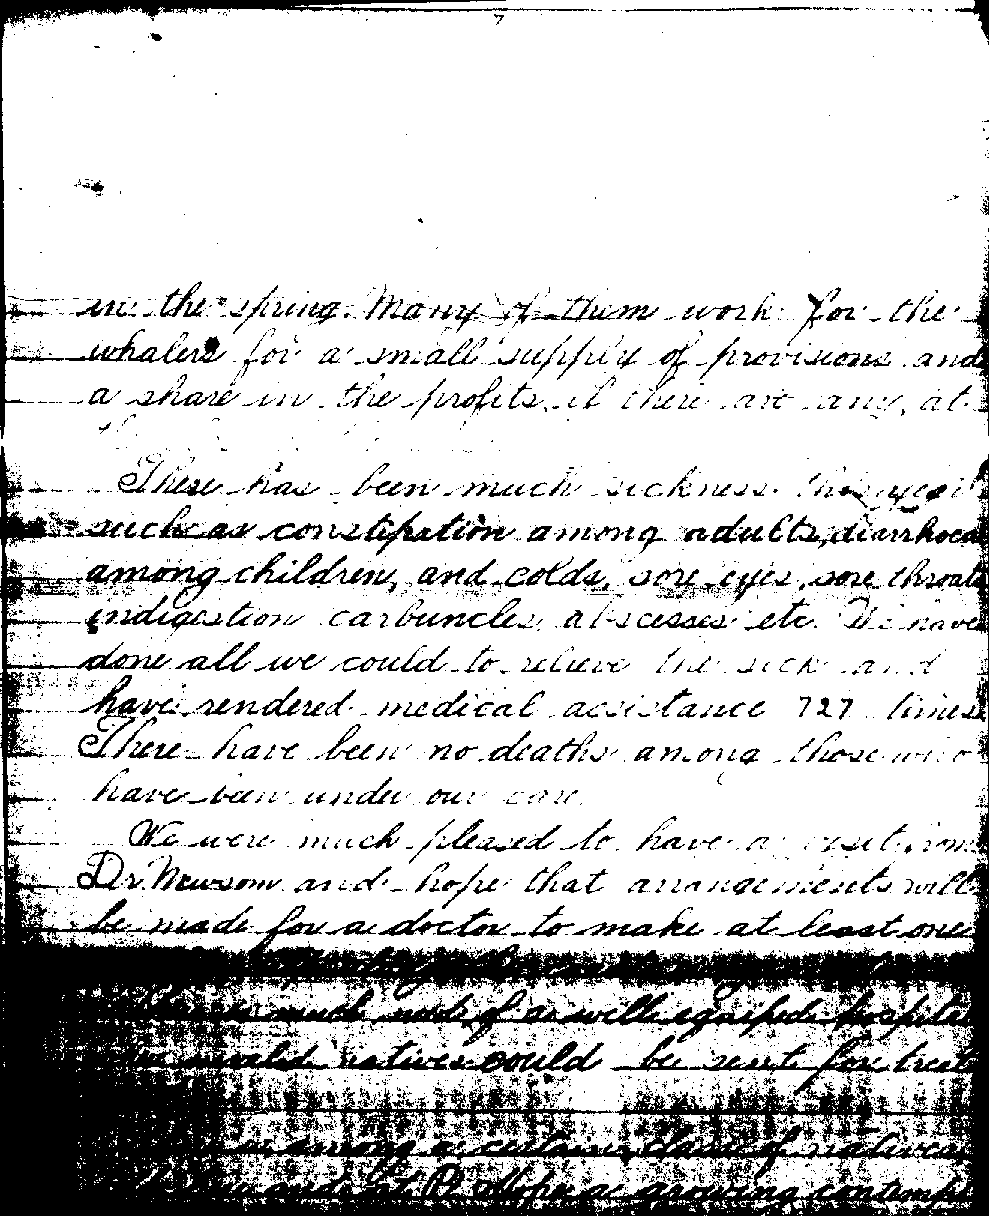 7
in the spring. Many of them work for the
whalers for a small supply of provisions and
a share in the profits, if there are any, at
There has been much sickness this year
such as constipation among adults, diarrhoea
among children, and colds, sore eyes, sore throats
indigestion carbuncles, abscesses etc. We have
done all we could to relieve the sick and
have rendered medical assistance 727 times
There have been no deaths among those who
have been under our care.
We were much pleased to have a visit from
Dr. Newsom and hope that arrangements will
be made for a doctor to make at least one
much need of a well equiped
natives could be sent for treat
among a certain class of natives
Pt. Hope a growing contempt